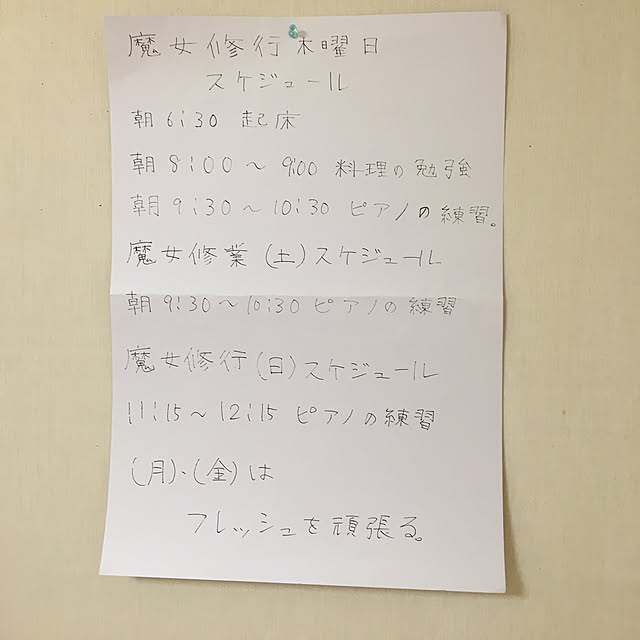 魔女修行木曜日
スケジュール
朝6:30 起床
朝8:00～9:00 料理の勉強
朝9:30～10:30 ピアノの練習。
魔女修業(土)スケジュール
朝9:30～10:30 ピアノの練習
魔女修行(日)スケジュール
11:15～12:15 ピアノの練習
(月)・(金)は
フレッシュを頑張る。